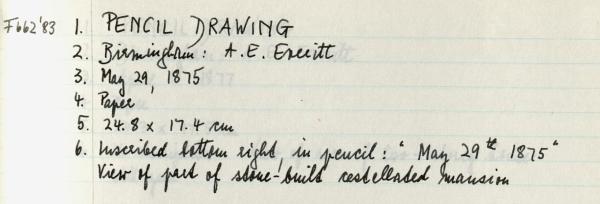 F662'83 1. PENCIL DRAWING
2. Birmingham: A.E. Everitt
3. May 29, 1875
4. Paper
5. 24.8 x 17.4 cm
6. Inscribed bottom right, in pencil: "May 29th 1875"
View of part of stone-built castellated mansion